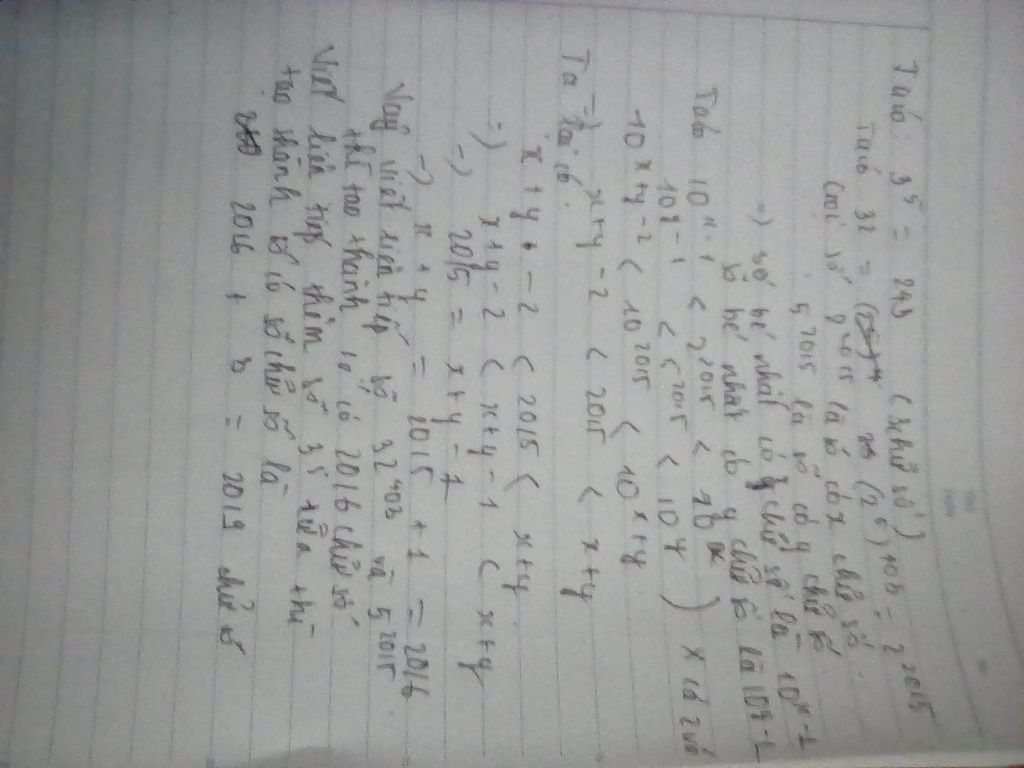 Ta có: 3⁵ = 243 (3 chữ số)
Ta có 32 = (2⁵)⁴⁰³ = 2²⁰¹⁵
Gọi số 2²⁰¹⁵ là số có x chữ số
5²⁰¹⁵ là số có y chữ số
=) số bé nhất có x chữ số là 10ˣ⁻¹
số bé nhất có y chữ số là 10ʸ⁻¹
Ta có 10ˣ⁻¹ < 2²⁰¹⁵ < 10ˣ
10ʸ⁻¹ < 5²⁰¹⁵ < 10ʸ ) x cả 2 vế
10ˣ⁺ʸ⁻² < 10²⁰¹⁵ < 10ˣ⁺ʸ
=) x+y-2 < 2015 < x+y
Ta có:
x+y-2 < 2015 < x+y
=) x+y-2 < x+y-1 < x+y
=) 2015 = x+y-1
=) x+y = 2015 + 1 = 2016
Vậy viết liên tiếp số 32⁴⁰³ và 5²⁰¹⁵
thì tạo thành số có 2016 chữ số
Viết liên tiếp thêm số 3⁵ nữa thì
tạo thành số có số chữ số là
2016 + 3 = 2019 chữ số